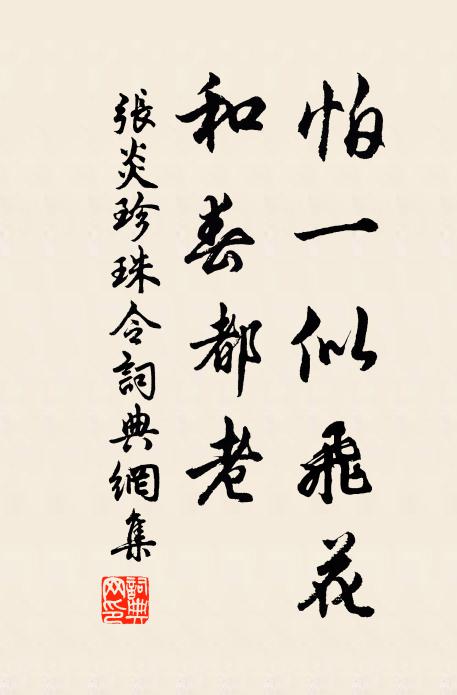 怕一似飛花
和春都老
張炎珍珠令詞典網集
詞典網印